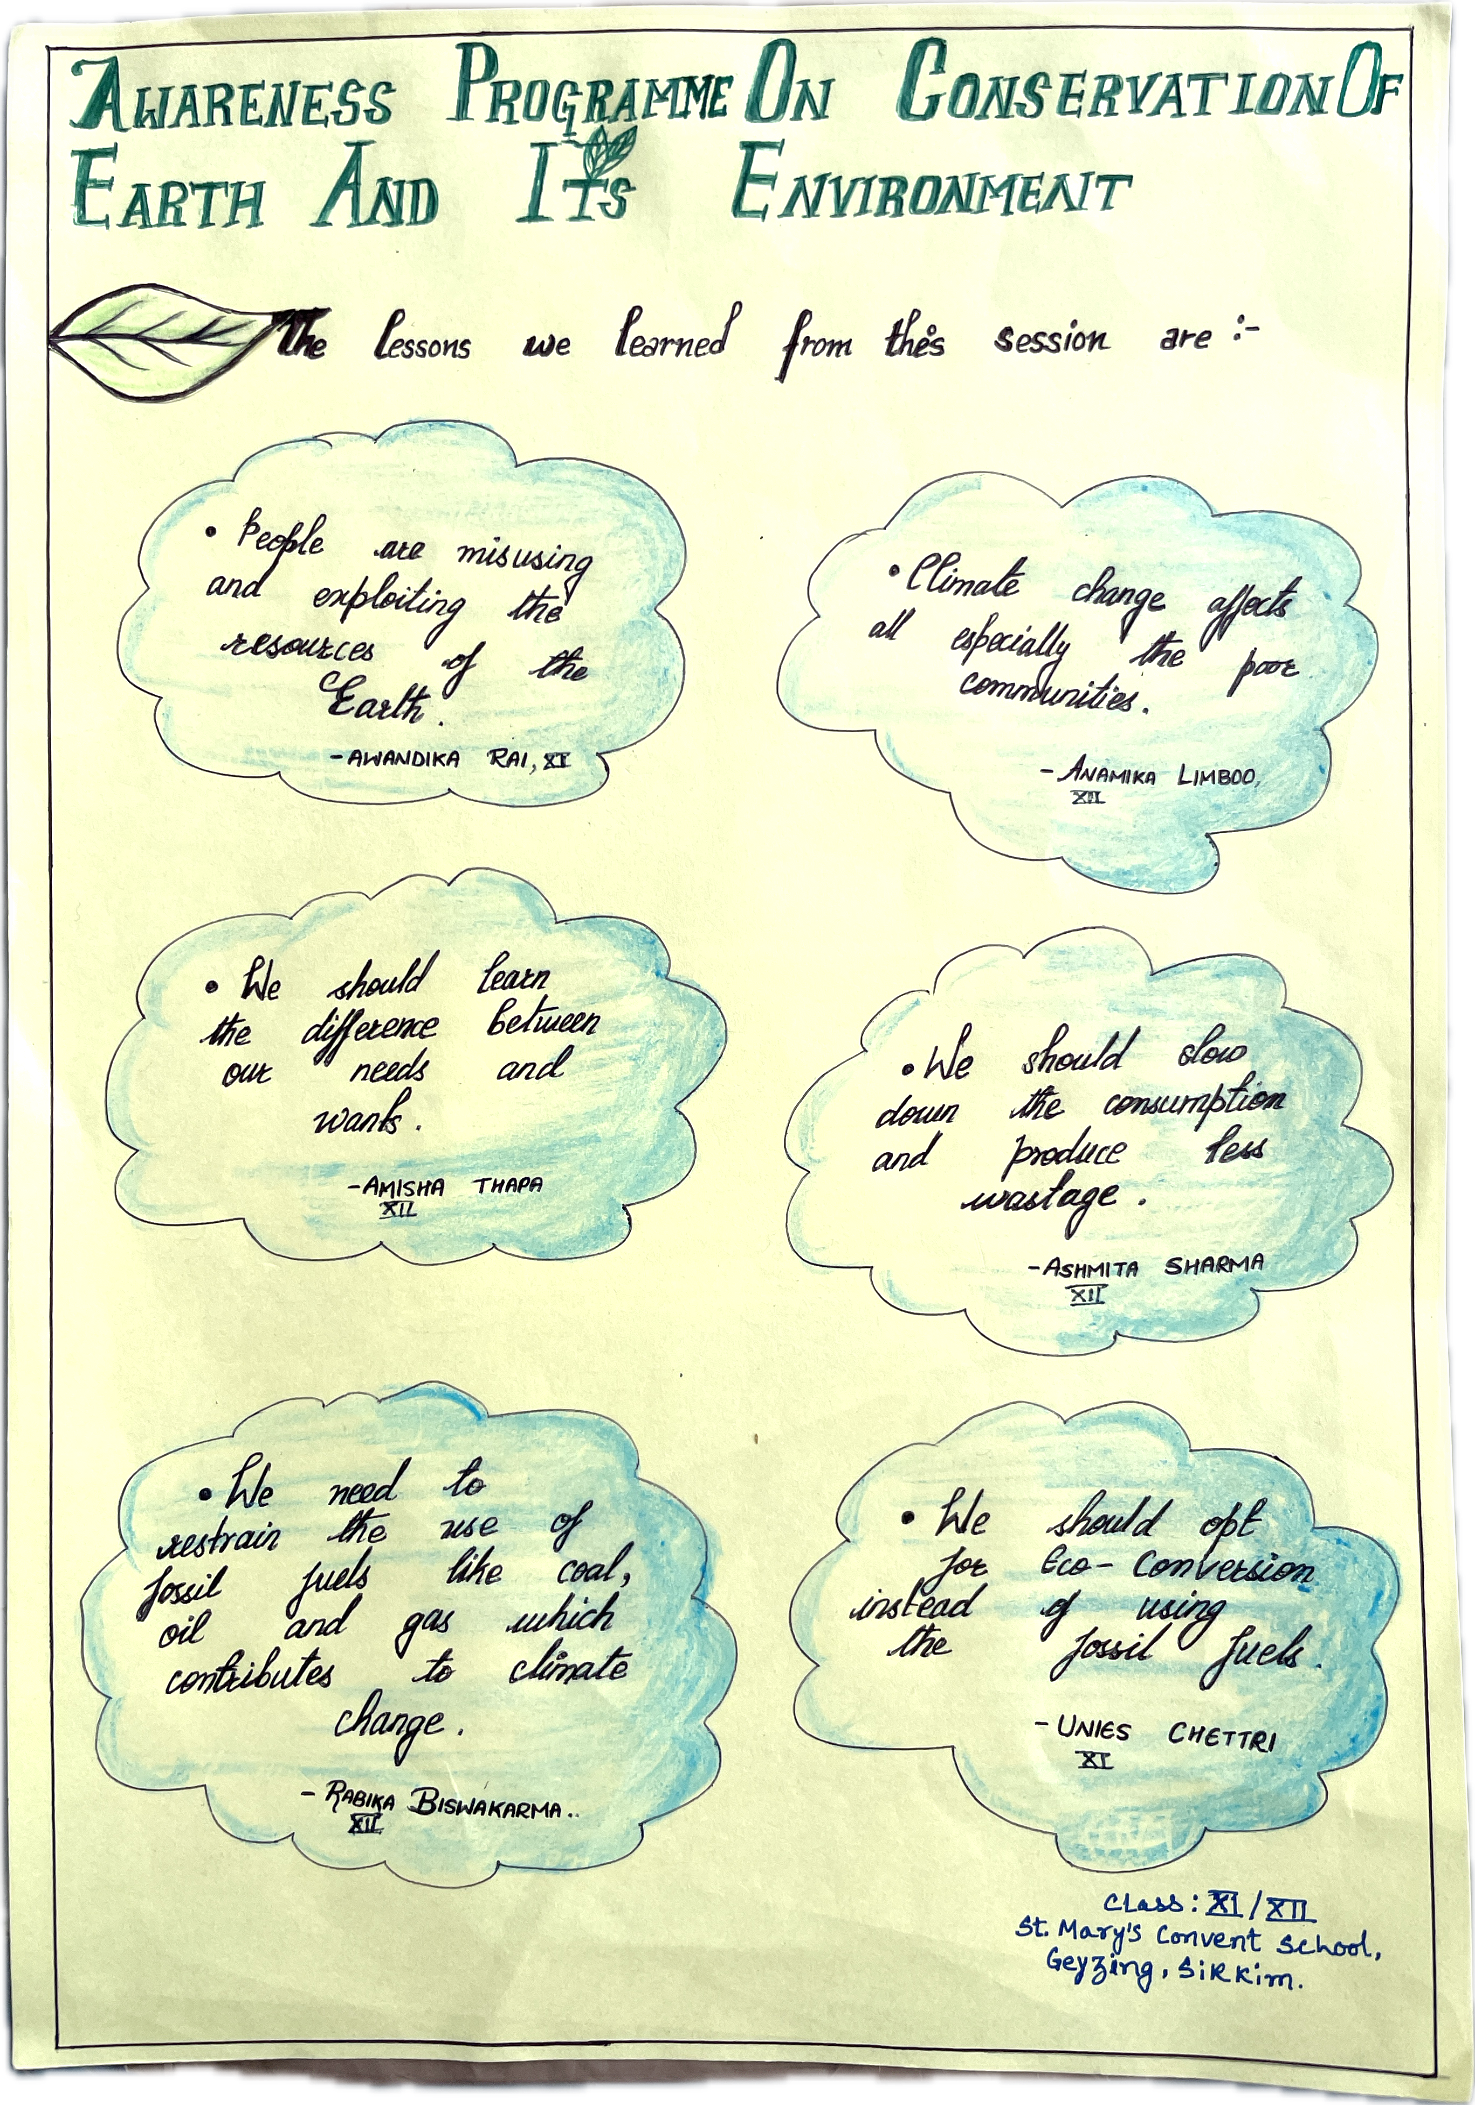 AWARENESS PROGRAMME ON CONSERVATION OF
EARTH AND ITS ENVIRONMENT
The lessons we learned from this session are :-
• People are misusing
and exploiting the
resources of the
Earth.
- AWANDIKA RAI, XI
• Climate change affects
all especially the poor
communities.
- ANAMIKA LIMBOO,
XII
• We should learn
the difference between
our needs and
wants.
- AMISHA THAPA
XII
• We should slow
down the consumption
and produce less
wastage.
- ASHMITA SHARMA
XII
• We need to
restrain the use of
fossil fuels like coal,
oil and gas which
contributes to climate
change.
- RABIKA BISWAKARMA..
XII
• We should opt
for Eco-Conversion
instead of using
the fossil fuels.
- UNIES CHETTRI
XI
Class: XI/XII
St. Mary's Convent School,
Geyzing, Sikkim.